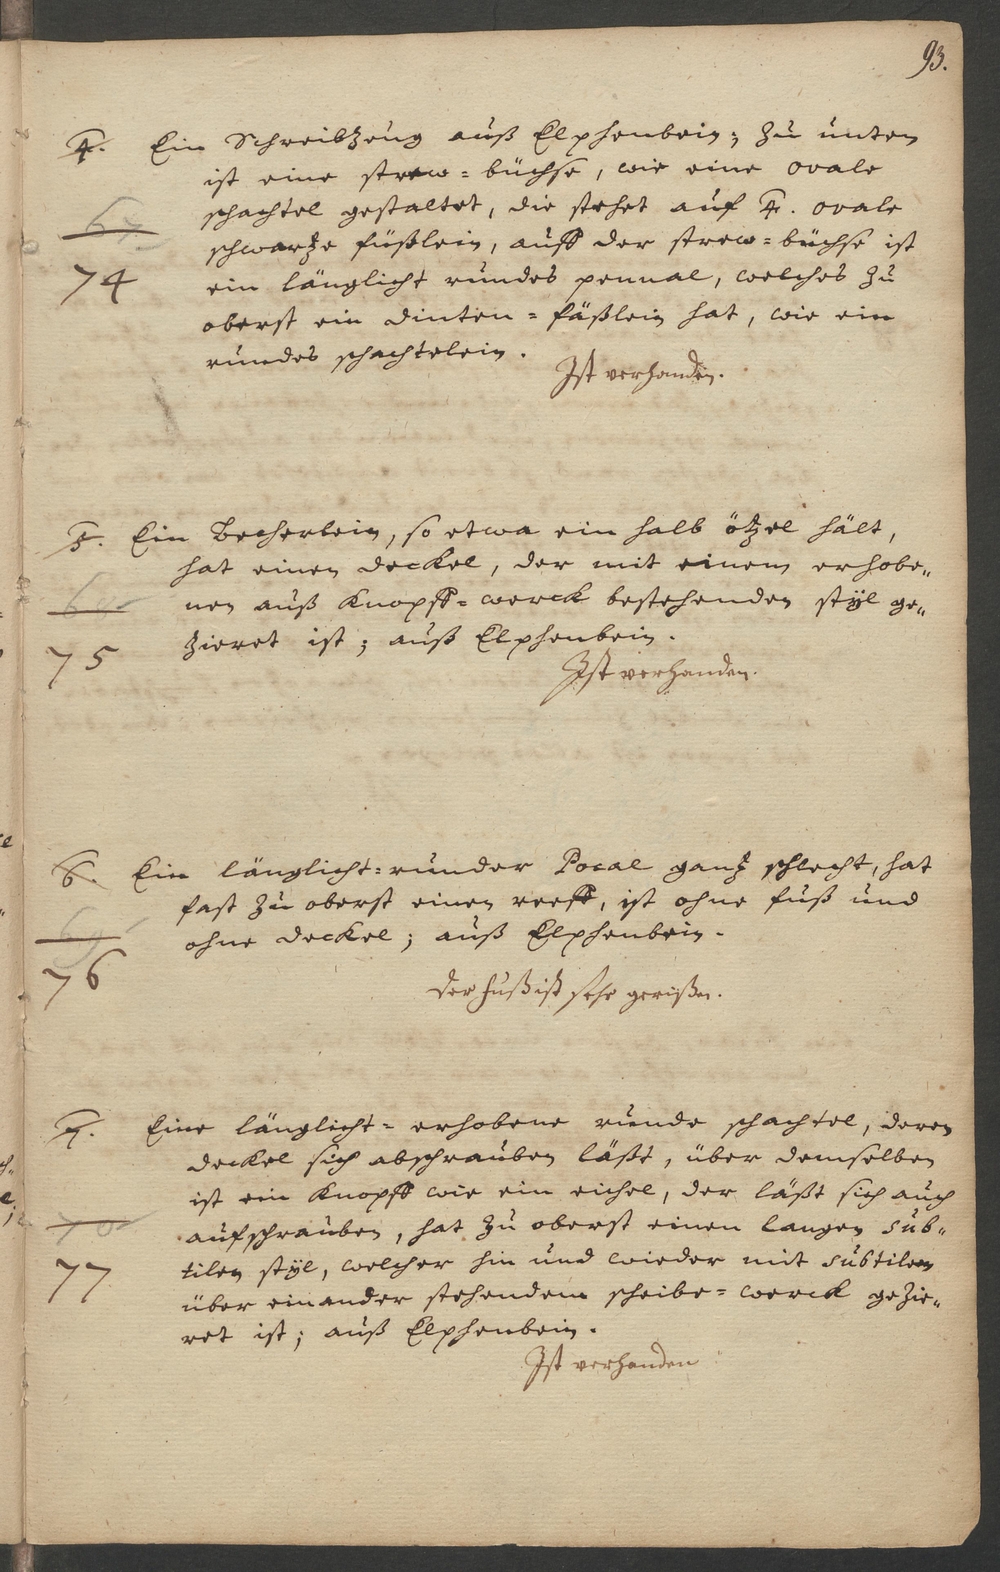 93.
4. Ein Schreibzeug auß Elphenbein; zu unten
ist eine strew=büchse, wie eine ovale
schachtel gestaltet, die stehet auf 4. ovale
schwartze füßlein, auff der strew=büchse ist
74
ein länglicht rundes pennal, welches zu
oberst ein dinten=fäßlein hat, wie ein
rundes schachtelein.
Ist verhanden.
5. Ein Becherlein, so etwa ein halb ötzel hält,
hat einen deckel, der mit einem erhobe„
nen auß Knopff=werck bestehenden styl ge„
75
zieret ist; auß Elphenbein.
Ist verhanden.
6. Ein länglicht=runder Pocal gantz schlecht, hat
fast zu oberst einen reeff, ist ohne fuß und
ohne deckel; auß Elphenbein.
76
der fuß ist sehr gerißen.
7. Eine länglicht=erhobene runde schachtel, deren
deckel sich abschrauben läßt, über demselben
ist ein Knopff wie ein eichel, der läßt sich auch
aufschrauben, hat zu oberst einen langen sub„
77
tilen styl, welcher hin und wieder mit subtilem
über einander stehendem scheibe=werck gezie„
ret ist; auß Elphenbein.
Ist verhanden